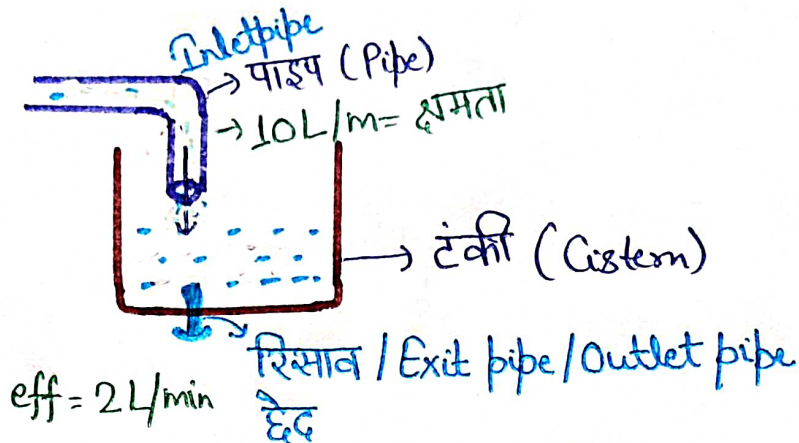 Inletpipe
→ पाइप (Pipe)
→ 10L/m = क्षमता
→ टंकी (Cistern)
रिसाव / Exit pipe / Outlet pipe
eff = 2L/min
छेद